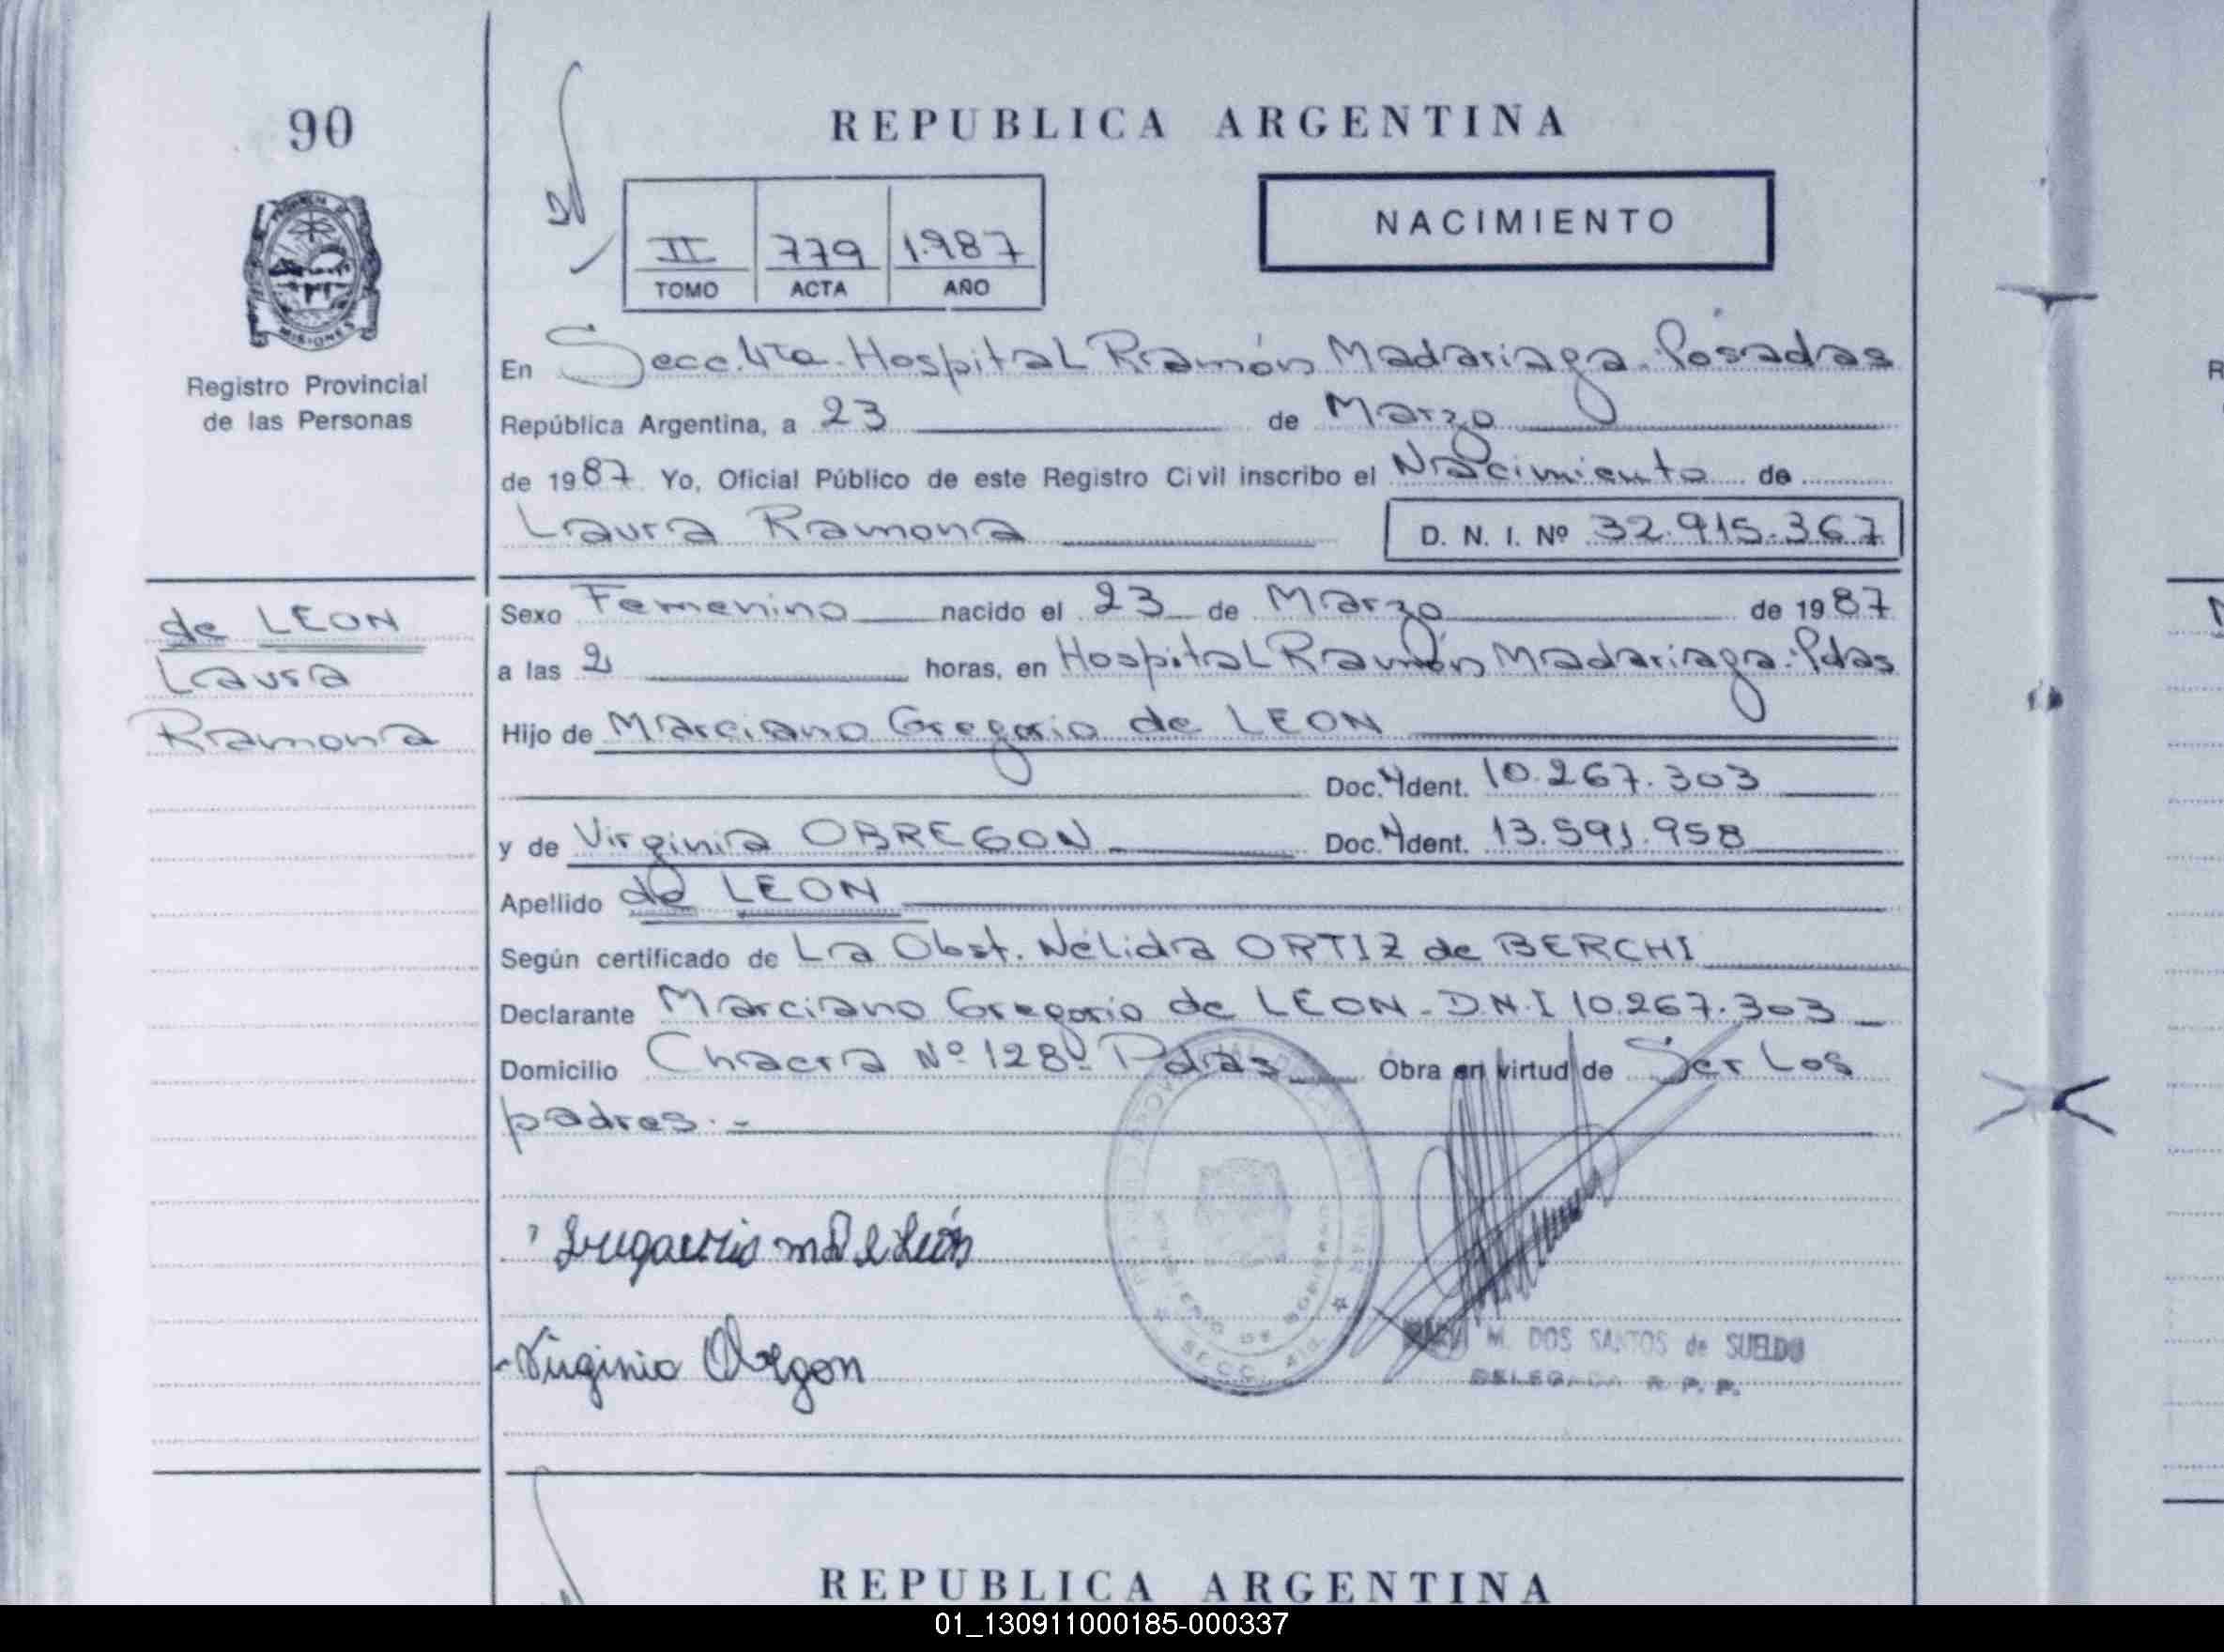 90
REPUBLICA ARGENTINA
II 779 1.987
TOMO ACTA AÑO
NACIMIENTO
MISIONES
Registro Provincial
de las Personas
En Secc. 4ta. Hospital Ramón Madariaga. Posadas
República Argentina, a 23 de Marzo
de 1987 Yo, Oficial Público de este Registro Civil inscribo el Nacimiento de
Laura Ramona D. N. I. Nº 32.915.367
de LEON
Laura
Ramona
Sexo Femenino nacido el 23 de Marzo de 1987
a las 2 horas, en Hospital Ramón Madariaga. Pdas
Hijo de Marciano Gregorio de LEON
Doc. Ident. 10.267.303
y de Virginia OBREGON Doc. Ident. 13.591.958
Apellido de LEON
Según certificado de La Obst. Nélida ORTIZ de BERCHI
Declarante Marciano Gregorio de LEON - D.N.I 10.267.303
Domicilio Chacra Nº 128 - Pdas Obra en virtud de Ser Los
padres. -
de León
Virginia Obregon
SECC. 4ta.
M. DOS SANTOS de SUELDO
DELEGADA R. P. P.
REPUBLICA ARGENTINA
01_130911000185-000337